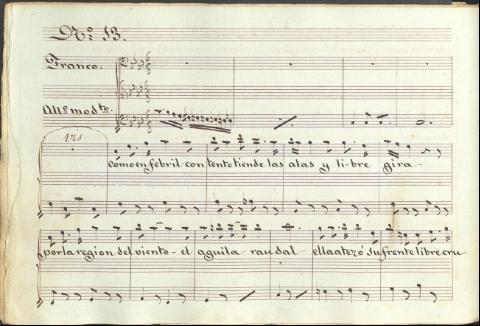 Nº 13.
Franco.
Allº modto.
como en febril contento tiende las alas y li-bre gira-
por la region del viento-el aguila rau dal ella aterró su frente libre cru